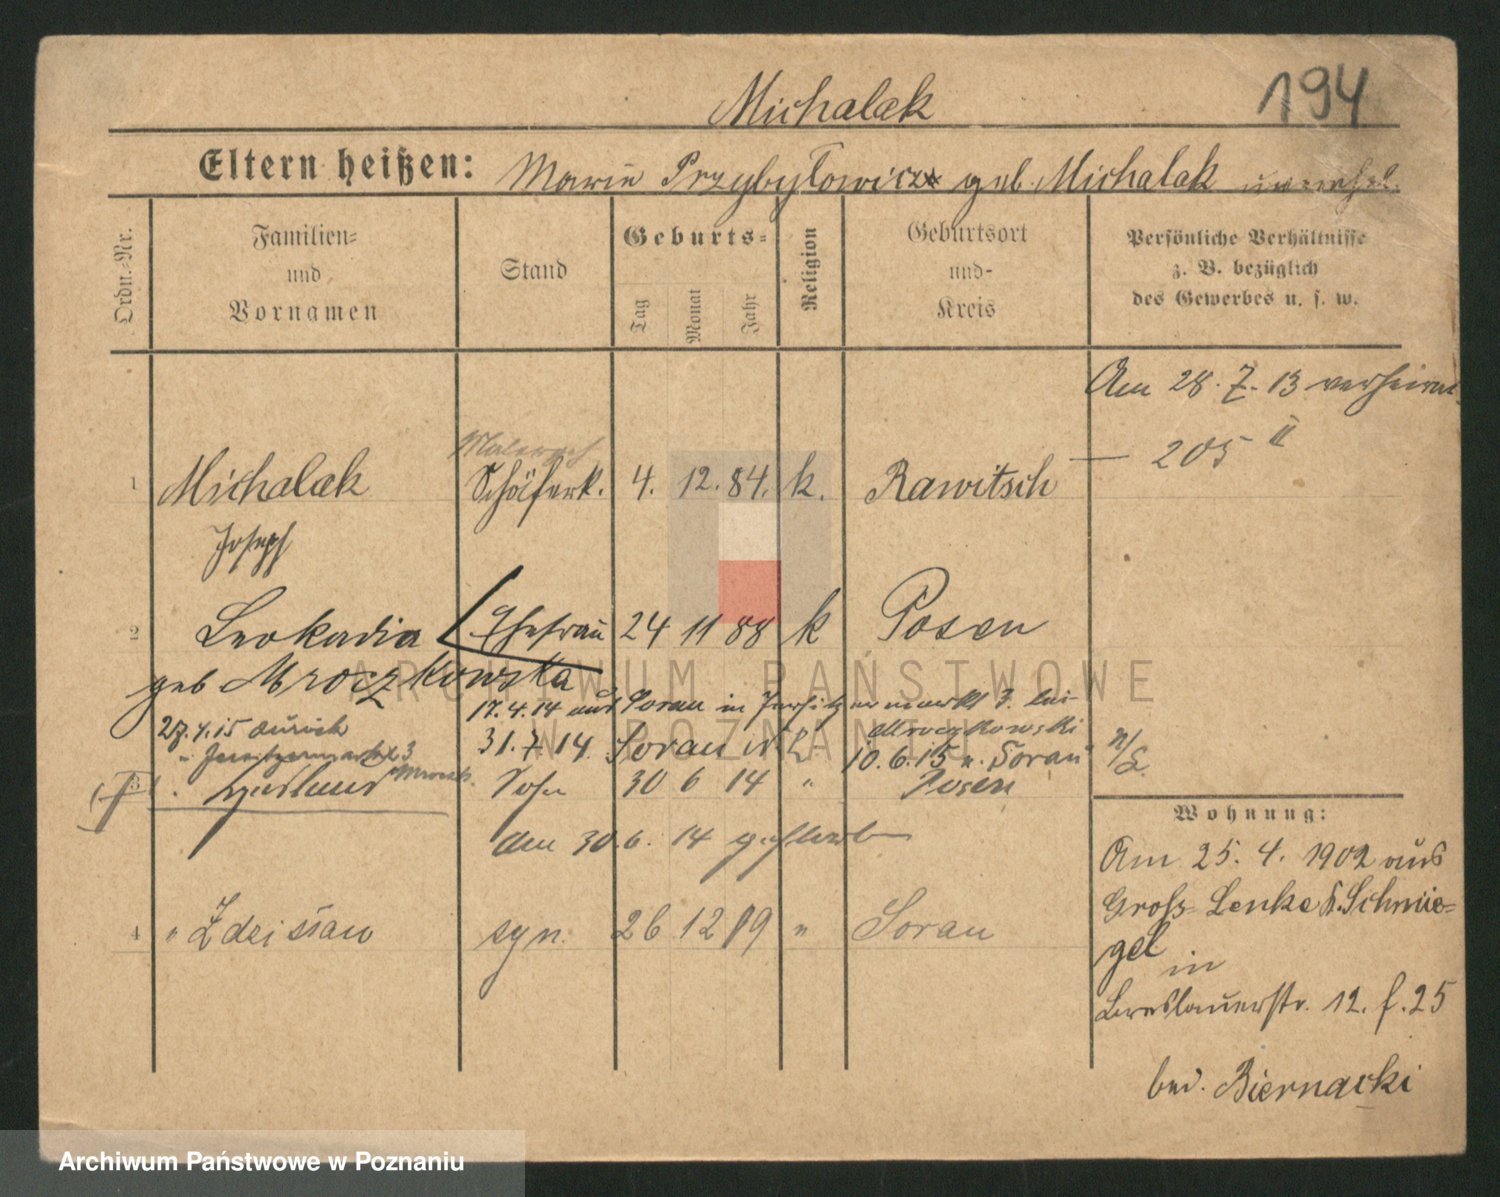 194
Michalak
Eltern heißen: Marie Przybyłowicz geb. Michalak
Ordn.-Nr.
Familien-
und
Vornamen
Stand
Geburts-
Tag
Monat
Jahr
Religion
Geburtsort
und
Kreis
Persönliche Verhältnisse
z. B. bezüglich
des Gewerbes u. s. w.
Am 28. 7. 13 verheirat
205 II
1 Michalak 4. 12. 84. k. Rawitsch
Joseph
2 Leokadia Ehefrau 24 11 88 k Posen
geb Mroczkowska
17.4.14 aus Sorau in 3. bei
Mroczkowski
27.4.15 zurück
31.7.14. Sorau
10.6.15 n. Sorau
3 Sohn 30 6 14 " Posen
am 30.6. 14 gestorben
4 " Zdzisław syn. 26 12 19 " Sorau
Wohnung:
Am 25. 4. 1902 aus
Groß Lenke K. Schmie-
gel
in
Breslauerstr. 12. f. 25
bei. Biernacki
ARCHIWUM PAŃSTWOWE
W POZNANIU
Archiwum Państwowe w Poznaniu